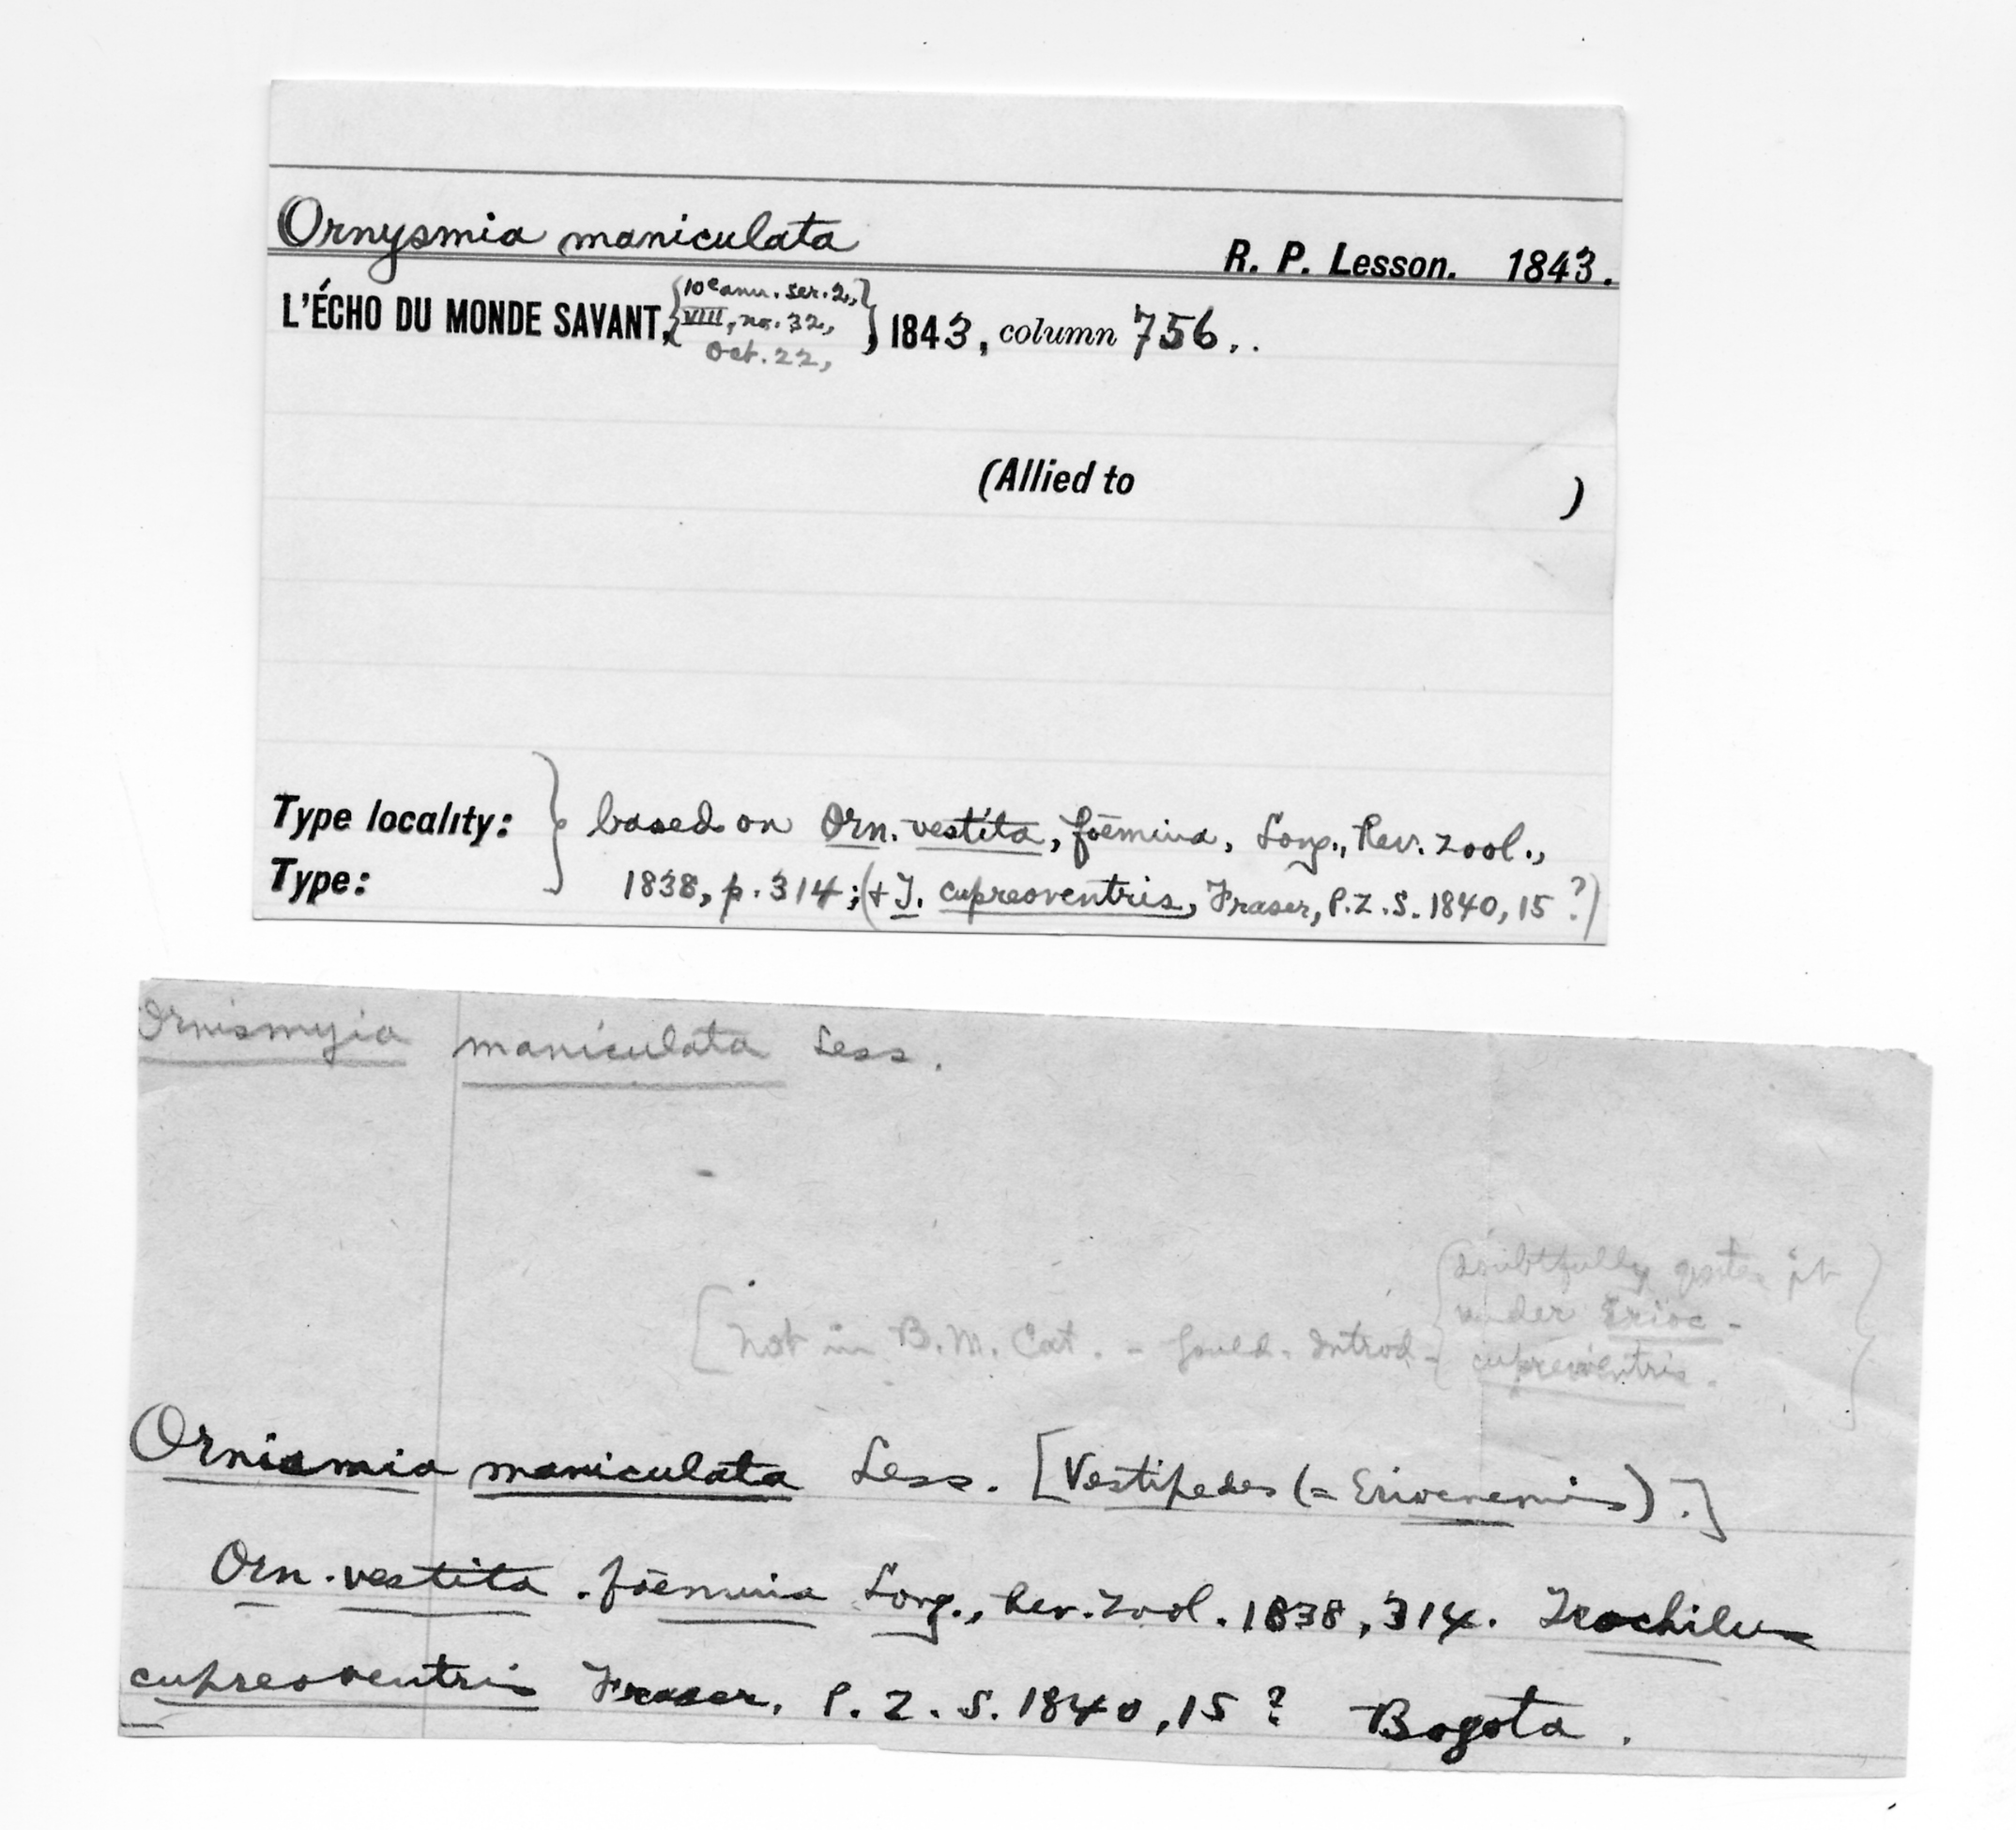 Ornysmia maniculata R. P. Lesson. 1843.
L'ÉCHO DU MONDE SAVANT, {10e ann. ser. 2,
VIII, no. 32,
Oct. 22,} 1843, column 756..
(Allied to )
Type locality: } based on Orn. vestita, foemina, Long., Rev. Zool.,
Type: 1838, p. 314; (+ T. cupreoventris, Fraser, P.Z.S. 1840, 15 ?)
Ornismyia maniculata Less.
{doubtfully quotes it
under Erioc-
[Not in B.M. Cat. - Gould. Introd- cupreiventris. }
Ornismia maniculata Less. [Vestipedes (= Eriocnemis).]
Orn. vestita. foemina Long., Rev. Zool. 1838, 314. Trochilus
cupreoventris Fraser, P. Z. S. 1840, 15 ? Bogota.